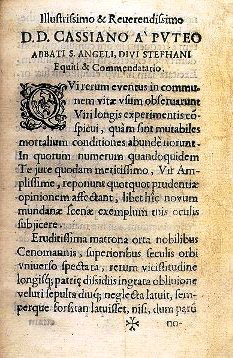 Illustrissimo & Reuerendissimo
D. D. CASSIANO A' PVTEO
ABBATI S. ANGELI, DIVI STEPHANI
Equiti & Commendatario.
QVi rerum euentus in commu-
nem vitæ vsum obseruarunt
Viri longis experimentis cō-
spicui, quàm sint mutabiles
mortalium conditiones abundè norunt.
In quorum numerum quandoquidem
Te jure quodam meritissimo, Vir Am-
plissime, reponunt quotquot prudentiæ
opinionem affectant, libet hîc novum
mundanæ scenæ exemplum tuis oculis
subijcere.
Eruditissima matrona orta nobilibus
Cenomannis, superioribus seculis orbi
vniuerso spectata, rerum vicissitudine
longisq; patrijs dissidijs ingrata obliuione
veluti sepulta diuq; neglecta latuit, sem-
perque forsitan latuisset, nisi, dum patrū
no-